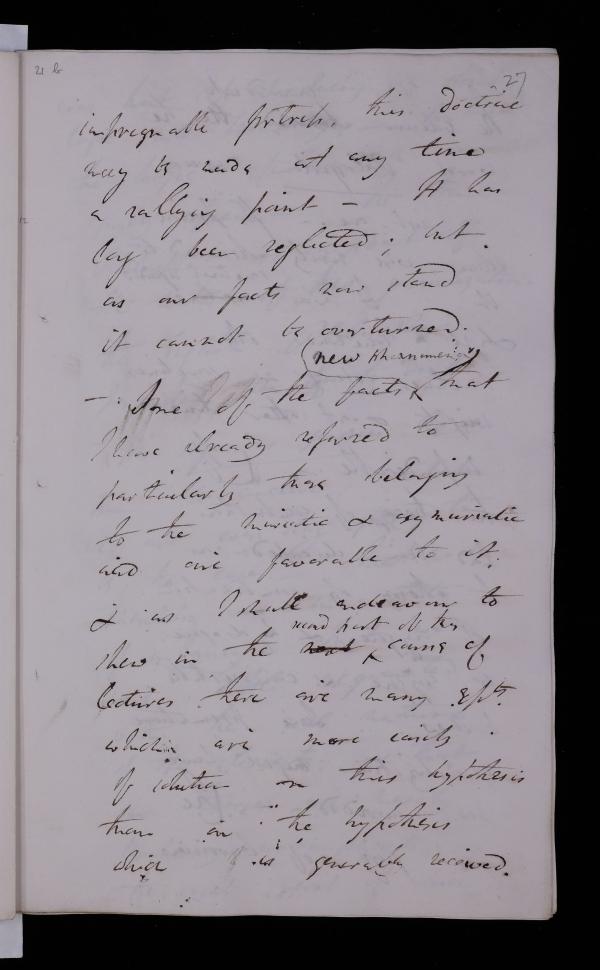 21 b
27
impregnable fortress, this doctrine
may be made at any time
a rallying point – It has
long been neglected; but
as our facts now stand
it cannot be overturned.
new phenomena
– Some of the facts that
I have already referred to
particularly those belonging
to the muriatic & oxymuriatic
acid are favorable to it;
& as I shall endeavour to
second part of this
shew in the next course of
lectures there are many expts.
which are more easily
of solution on this hypothesis
than on the hypothesis
which is generally received.